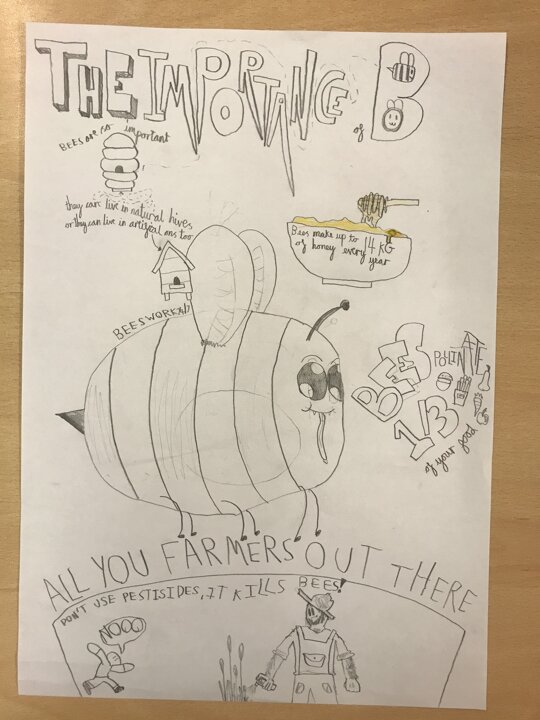 THE IMPORTANCE
of B
BEES are so important
they can live in natural hives
or they can live in artificial ons too
Bees make up to 14 KG
of honey every year
BEES WORK 24/7
BEES
POLINATE
1/3
of your food
ALL YOU FARMERS OUT THERE
DON'T USE PESTISIDES, IT KILLS BEES!
NOOO